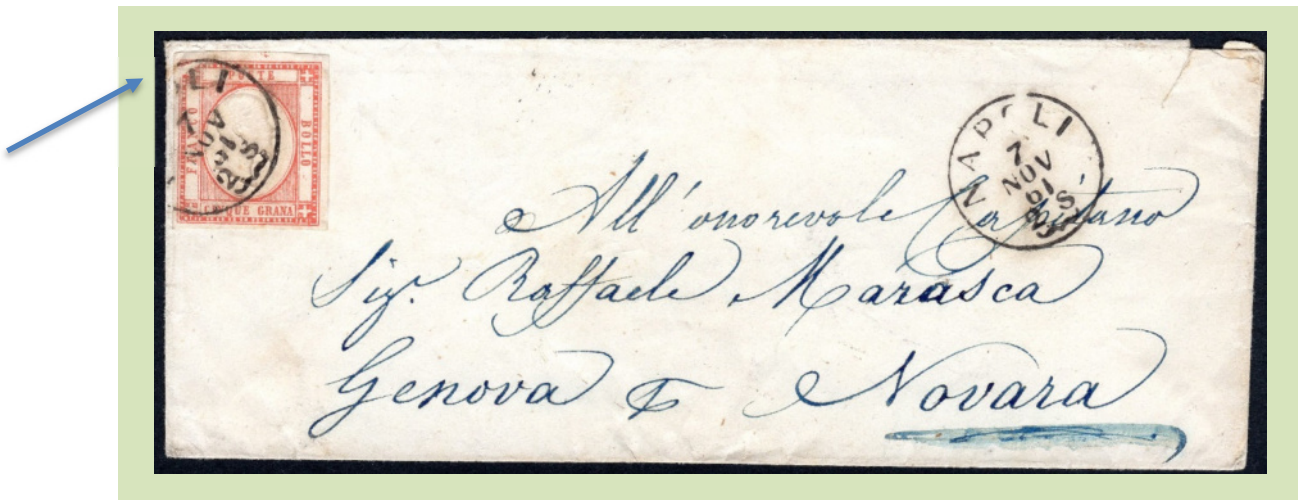 POSTE
FRANCO
BOLLO
CINQUE GRANA
NAPOLI
7
NOV
61
All' onorevole Capitano
Sig. Raffaele Marasca
Genova
Novara